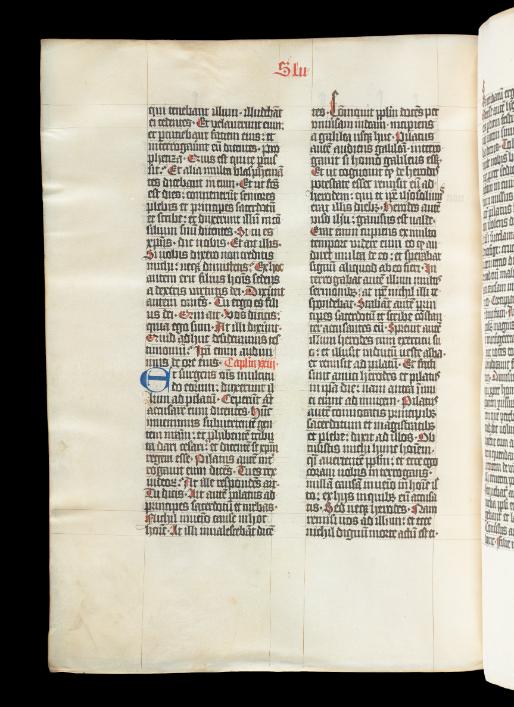 S Lu
qui tenebant illum · illudebāt
ei cedentes · Et velauerunt eum ·
et percutiebant faciem eius : et
interrogabant eū dicentes · Pro
phetiza · Quis est qui te percus
sit · Et alia multa blasphemā
tes dicebant in eum · Et ut fcūs
est dies : conuenerūt seniores
plebis et principes sacerdotū
et scribe : et duxerunt illū in cō
silium suū dicentes · Si tu es
xpūs · dic nobis · Et ait illis ·
Si vobis dixero non credetis
michi : neqꝫ dimittetis · Ex hoc
autem erit filius hoīs sedens
a dextris virtutis dei · Dixerūt
autem omēs · Tu ergo es fili
us dei · Qui ait · Vos dicitis :
quia ego sum · At illi dixerūt ·
Quid adhuc desideramus tes
timoniū · Ipī enim audiui
mus de ore eius · Caplm xxiij
Et surgens oīs multitu
do eorum : duxerunt il
lum ad pilatū · Ceperūt aūt
accusare eum dicentes · Hūc
inuenimus subuertentē gen
tem nrām : et phibentē tribu
ta dari cesari : et dicentē se xpm
regem esse · Pilatus autē int̄
rogauit eum dicēs · Tu es rex
iudeoꝝ · At ille respondēs ait ·
Tu dicis · Ait autē pilatus ad
principes sacerdotū et turbas ·
Nichil inuenio cause in hoc
hoīe · At illi inualescebāt dicē
tes · Cōmouit pplm docēs per
vniuersam iudeam · incipiens
a galilea usqꝫ huc · Pilatus
autē audiens galileā · interro
gauit si homo galileus esset ·
Et ut cognouit qꝫ de herodis
potestate esset remisit eū ad
herodem : qui et ipē iherosolimis
erat illis diebꝫ · Herodes autē
viso ihesu : gauisus est valde ·
Erat enim cupiens ex multo
tempore videre eum eo qꝫ au
diret multa de eo : et sperabat
signū aliquod ab eo fieri · In
terrogabat autē illum multis
sermonibꝫ : at ipē nichil illi re
spondebat · Stabāt autē prin
cipes sacerdotū et scribe constan
ter accusantes eū · Spreuit autē
illum herodes cum exercitu su
o : et illusit indutū veste alba ·
et remisit ad pilatū · Et facti
sunt amici herodes et pilatus
in ipā die : nam antea inimi
ci erant ad inuicem · Pilatus
autē conuocatis principibꝫ
sacerdotum et magistratibꝫ
et plebe : dixit ad illos · Ob
tulistis michi hunc hoīem ·
qꝭ auertentē pplm : et ecce ego
coram vobis interrogans ·
nullā causā inuenio in hoīe is
to : ex hijs in quibꝫ eū accusa
tis · Sed neqꝫ herodes · Nam
remisi vos ad illum : et ecce
nichil dignū morte actū est ei ·